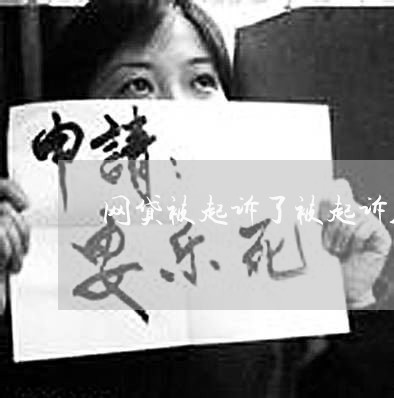 申請：
网贷被起诉了被起诉
安乐死